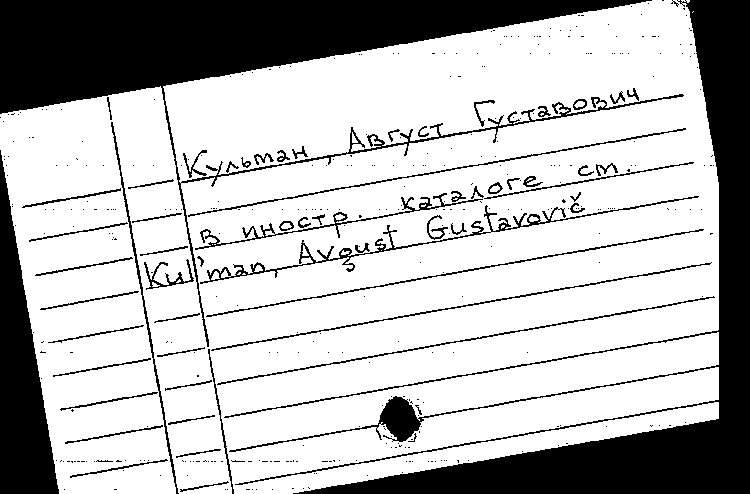 Кульман, Август Густавович
в иностр. каталоге см.
Kul'man, Avgust Gustavovič